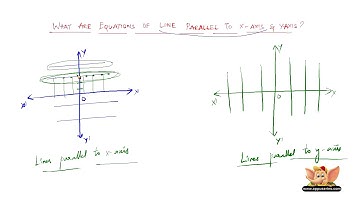 WHAT ARE EQUATIONS OF LINE PARALLEL TO X-AXIS & Y-AXIS?
Y
X' O X
Y'
Lines parallel to x-axis
Y
X' O X
Y'
Lines parallel to y-axis
www.appuseries.com